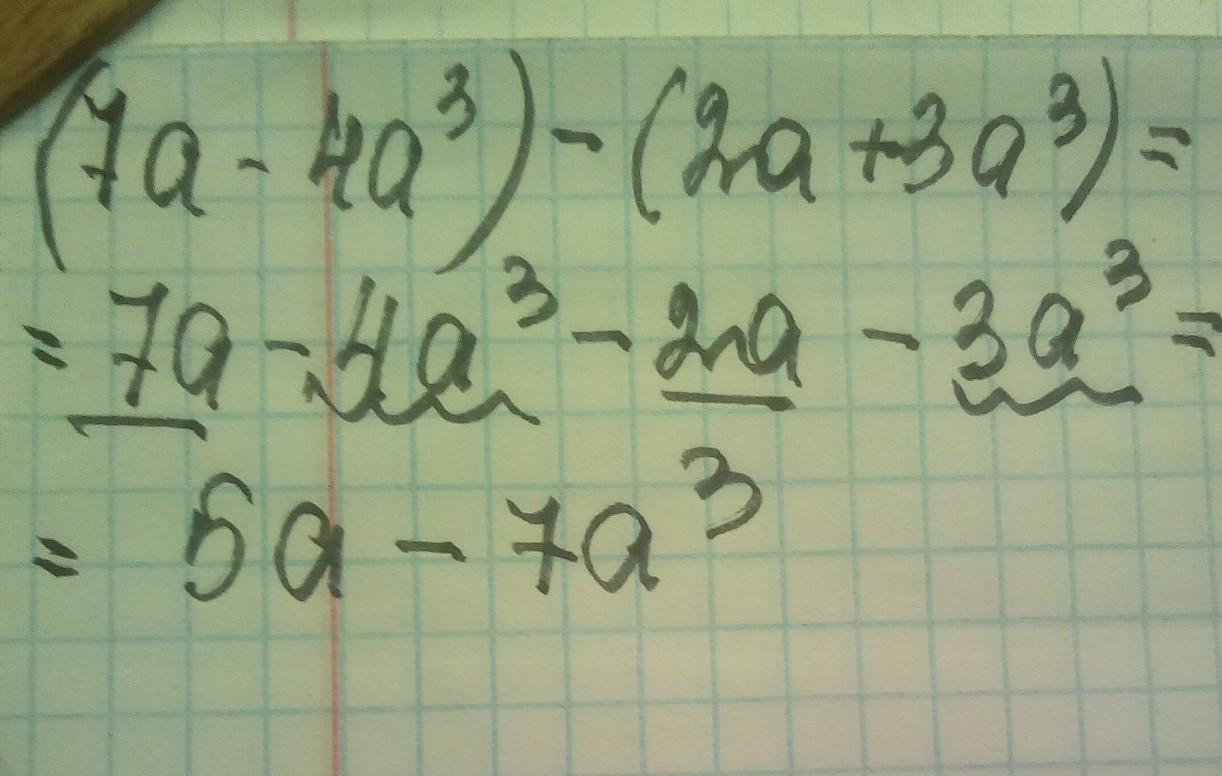 (7a - 4a³) - (2a + 3a³) =
= 7a - 4a³ - 2a - 3a³ =
= 5a - 7a³